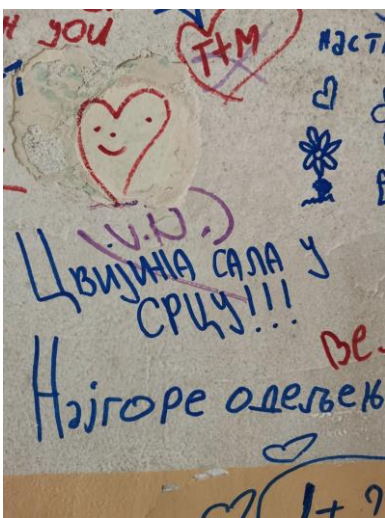 you
T+M
наст
V.N.
Цвијина сала у
срцу!!!
Ве
Најгоре одељењ
1+2